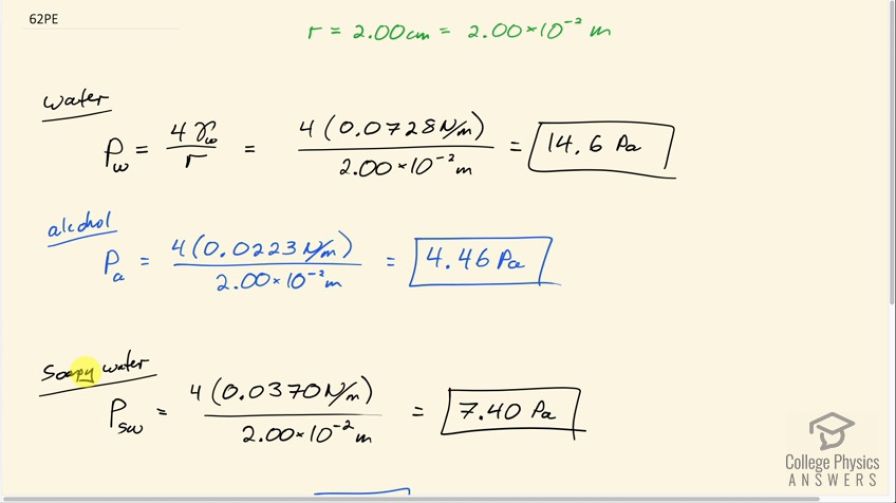 62PE
r = 2.00cm = 2.00×10⁻² m
water
P_w = 4γ_w / r = 4(0.0728 N/m) / 2.00×10⁻² m = 14.6 Pa
alcohol
P_a = 4(0.0223 N/m) / 2.00×10⁻² m = 4.46 Pa
Soapy water
P_sw = 4(0.0370 N/m) / 2.00×10⁻² m = 7.40 Pa
College Physics
ANSWERS